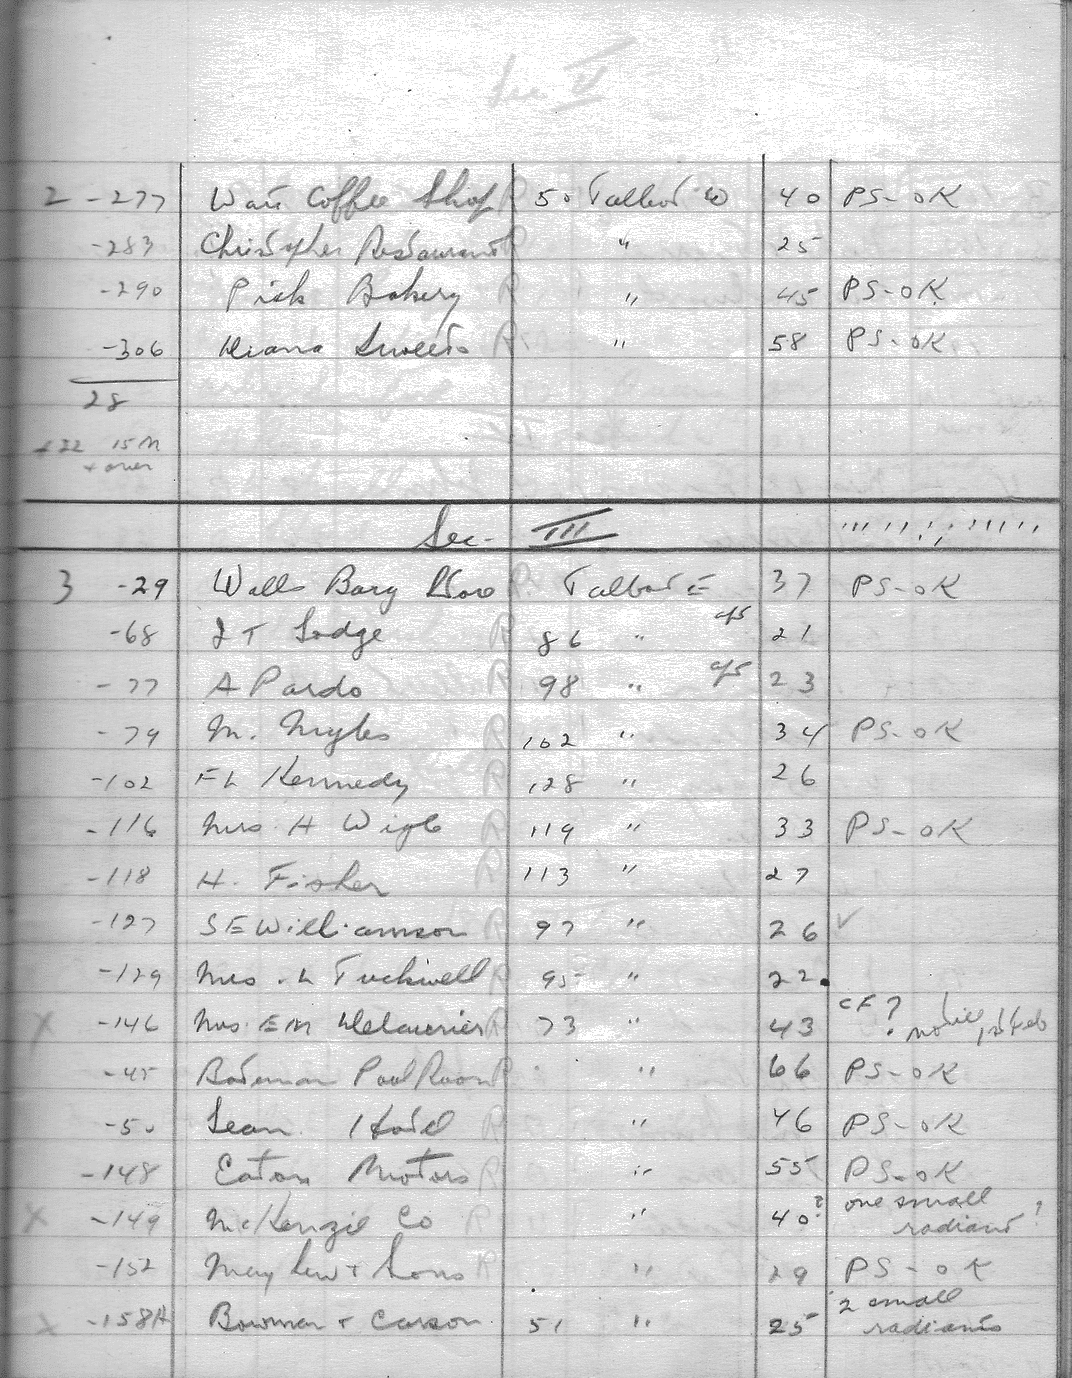 2 -277 Coffee Shop 50 Talbot W 40 PS-OK
-283 Christopher Restaurant " 25
-290 Pish Bakery " 45 PS-OK
-306 Diana Sweets " 58 PS-OK
28
15 M
+ over
Sec- III
3 -29 Walls Barg Store Talbot E 37 PS-OK
-68 J T Lodge 86 " 21
-77 A Pardo 98 " 23
-79 M. Myles 102 " 34 PS-OK
-102 F L Kennedy 128 " 26
-116 Mrs H Wigle 119 " 33 PS-OK
-118 H. Fisher 113 " 27
-127 S E Williamson 97 " 26 ✓
-129 Mrs. L Tuckwell 95 " 22
X -146 Mrs. E M Delaurier 73 " 43 CF ?
-45 Bateman Pool Room " 66 PS-OK
-50 Hotel " 46 PS-OK
-148 Eaton Motors " 55 PS-OK
X -149 McKenzie Co " 40? one small
radiant ?
-152 Mayhew + Sons " 29 PS-OK
X -158A Bowman + Carson 51 " 25 2 small
radiants